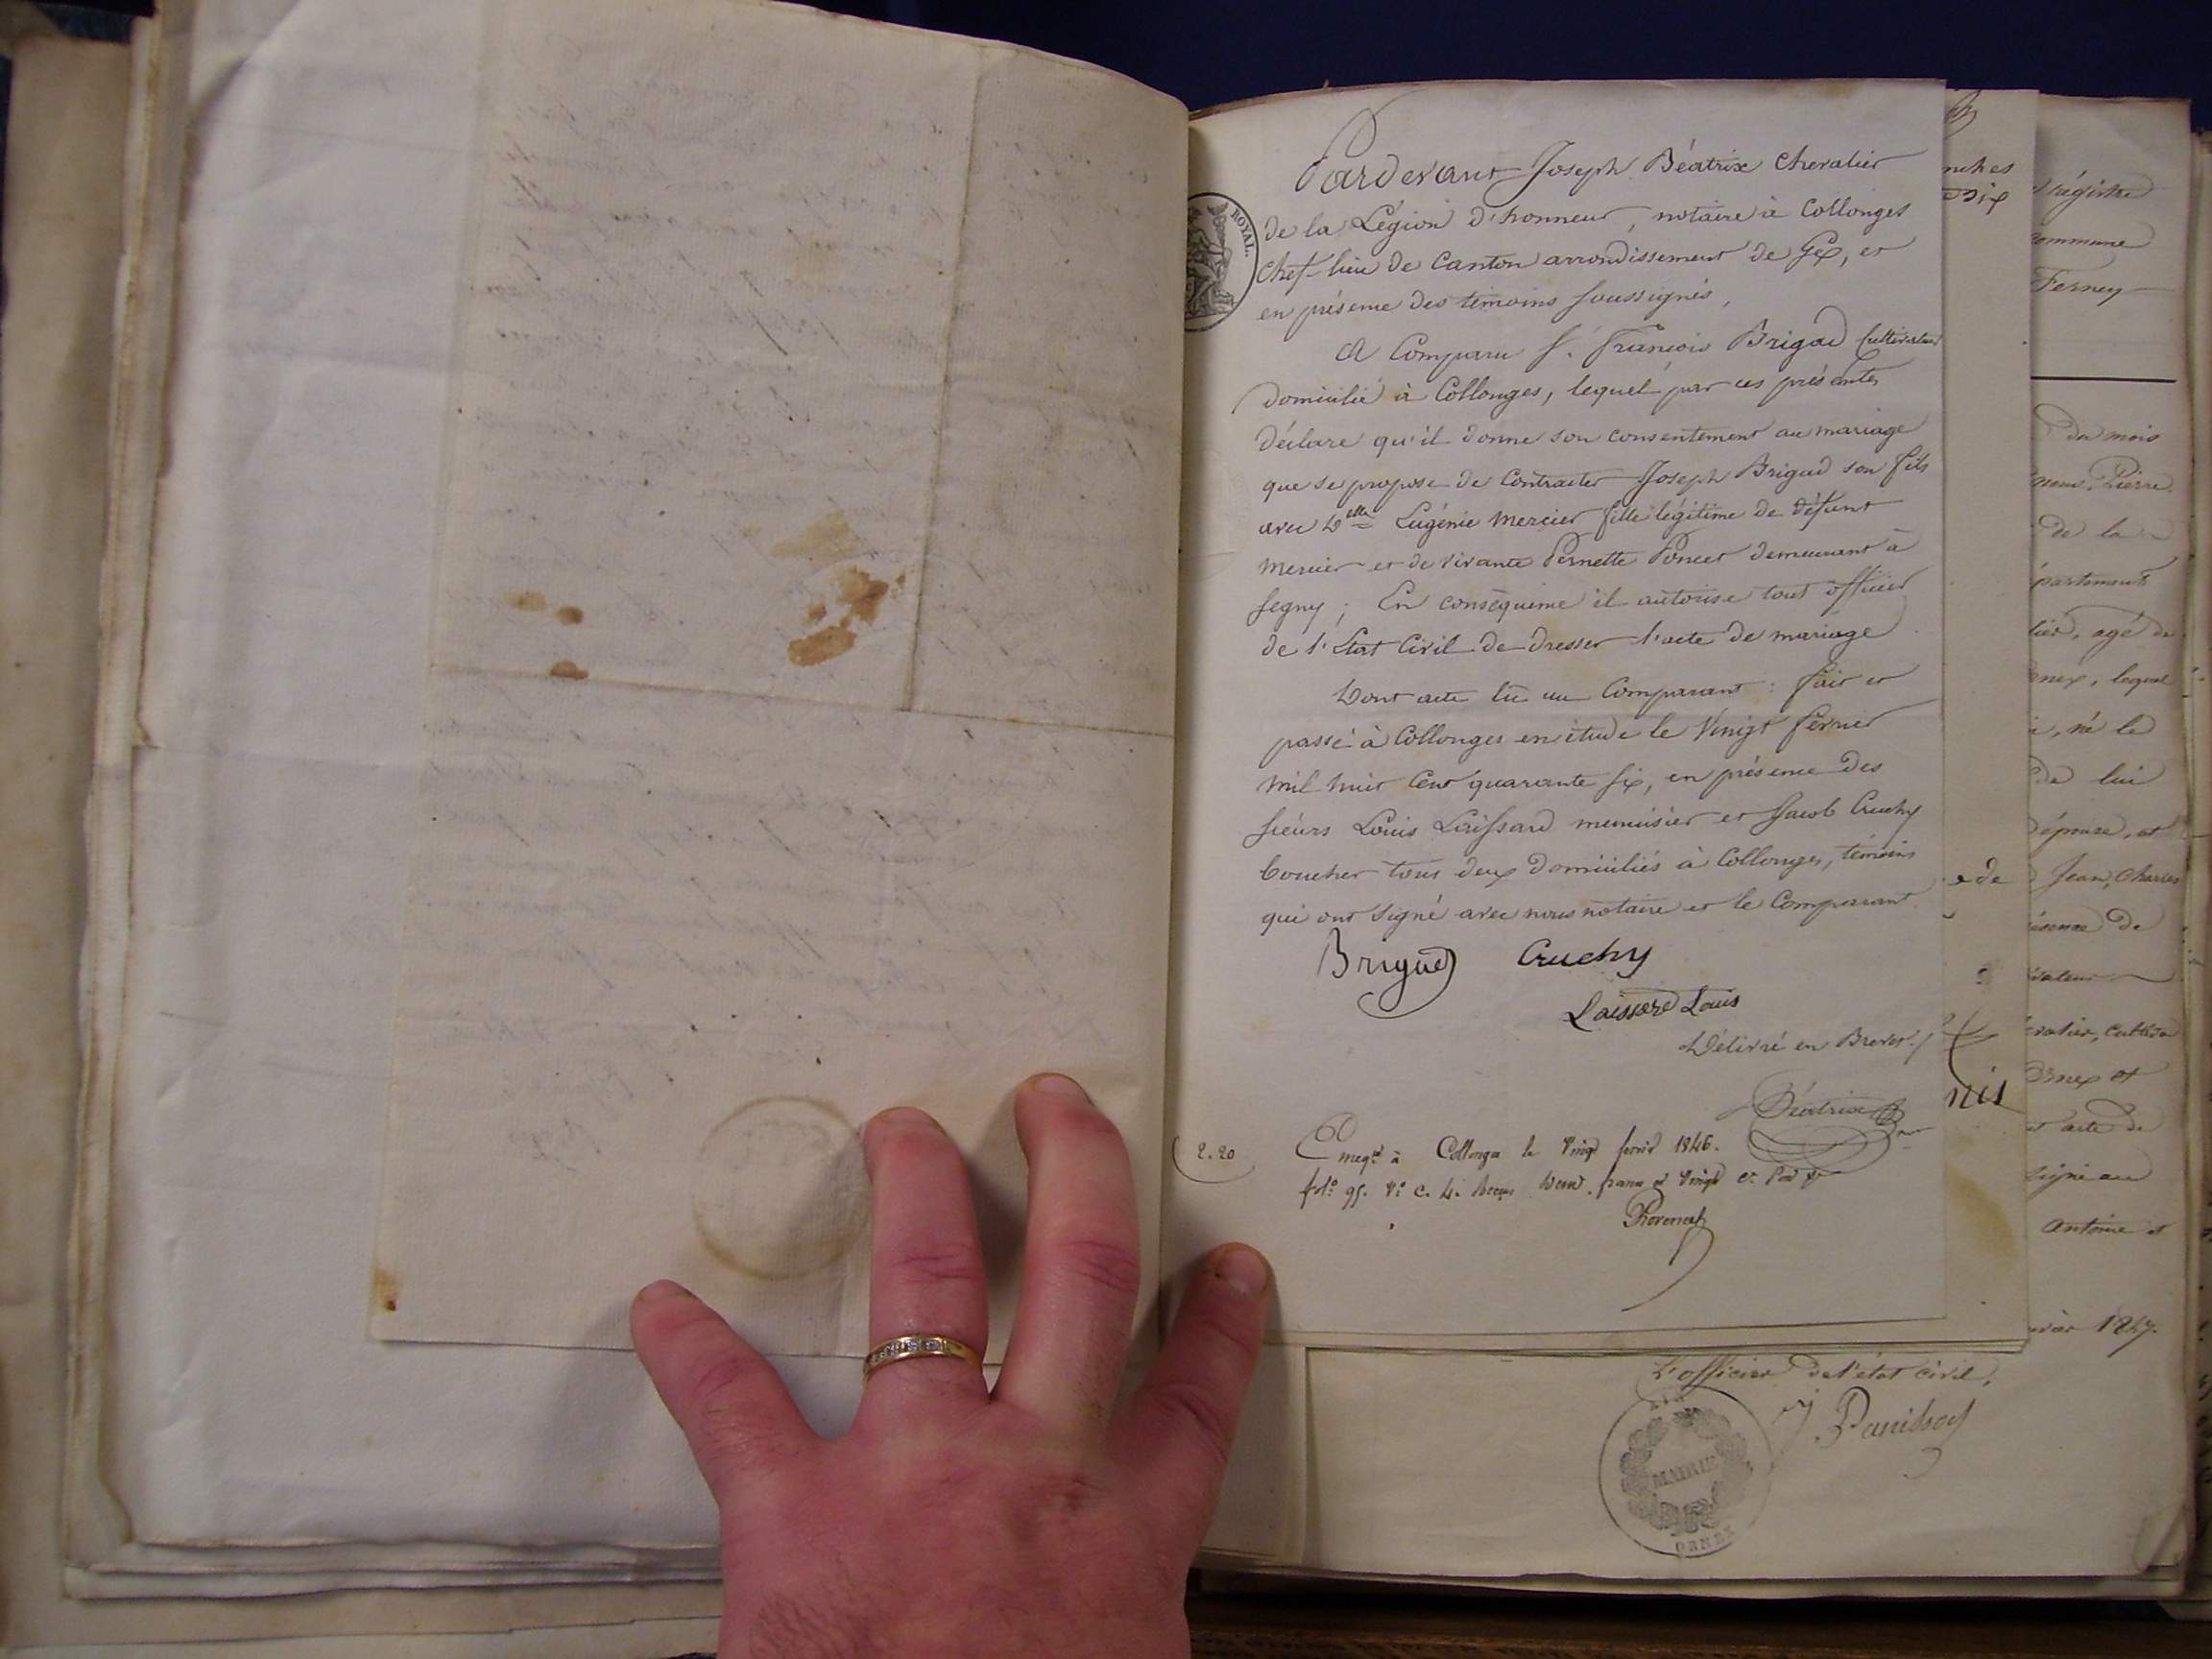 Pardevant Joseph Béatrix Chevalier
de la Légion d'honneur, notaire à Collonges
Chef-lieu de Canton arrondissement de Gex, et
en présence des témoins soussignés,
A Comparu S. François Brigad Cultivateur
domicilié à Collonges, lequel par ces présentes
déclare qu'il donne son consentement au mariage
que se propose de Contracter Joseph Brigad son fils
avec Dlle Eugénie Mercier fille légitime de défunt
Mercier et de vivante Pernette Poncet demeurant à
Segny ; En conséquence il autorise tout officier
de l'Etat Civil de dresser l'acte de mariage
Dont acte lu au Comparant : fait et
passé à Collonges en étude le Vingt février
Mil huit Cent quarante six, en présence des
sieurs Louis Laissard menuisier et Jacob Cruchy
boucher tous deux domiciliés à Collonges, témoins
qui ont signé avec nous notaire et le Comparant.
Brigad Cruchy
Laissard Louis
Délivré en Brevet.
Béatrix
2.20
à Collonges le Vingt février 1846.
fol. 95. V. C. 4. Reçu deux francs Vingt C.
ROYAL.
nches
dix
ede
nis
régistre
commune
Ferney
du mois
Pierre
de la
partement
lier, agé de
nex, lequel
né le
de lui
épouse, et
Jean, Charles
de
valier,
Ornex et
acte de
signé au
antoine et
1847.
L'officier de l'état civil,
J. Panissod
MAIRIE
ORNEX